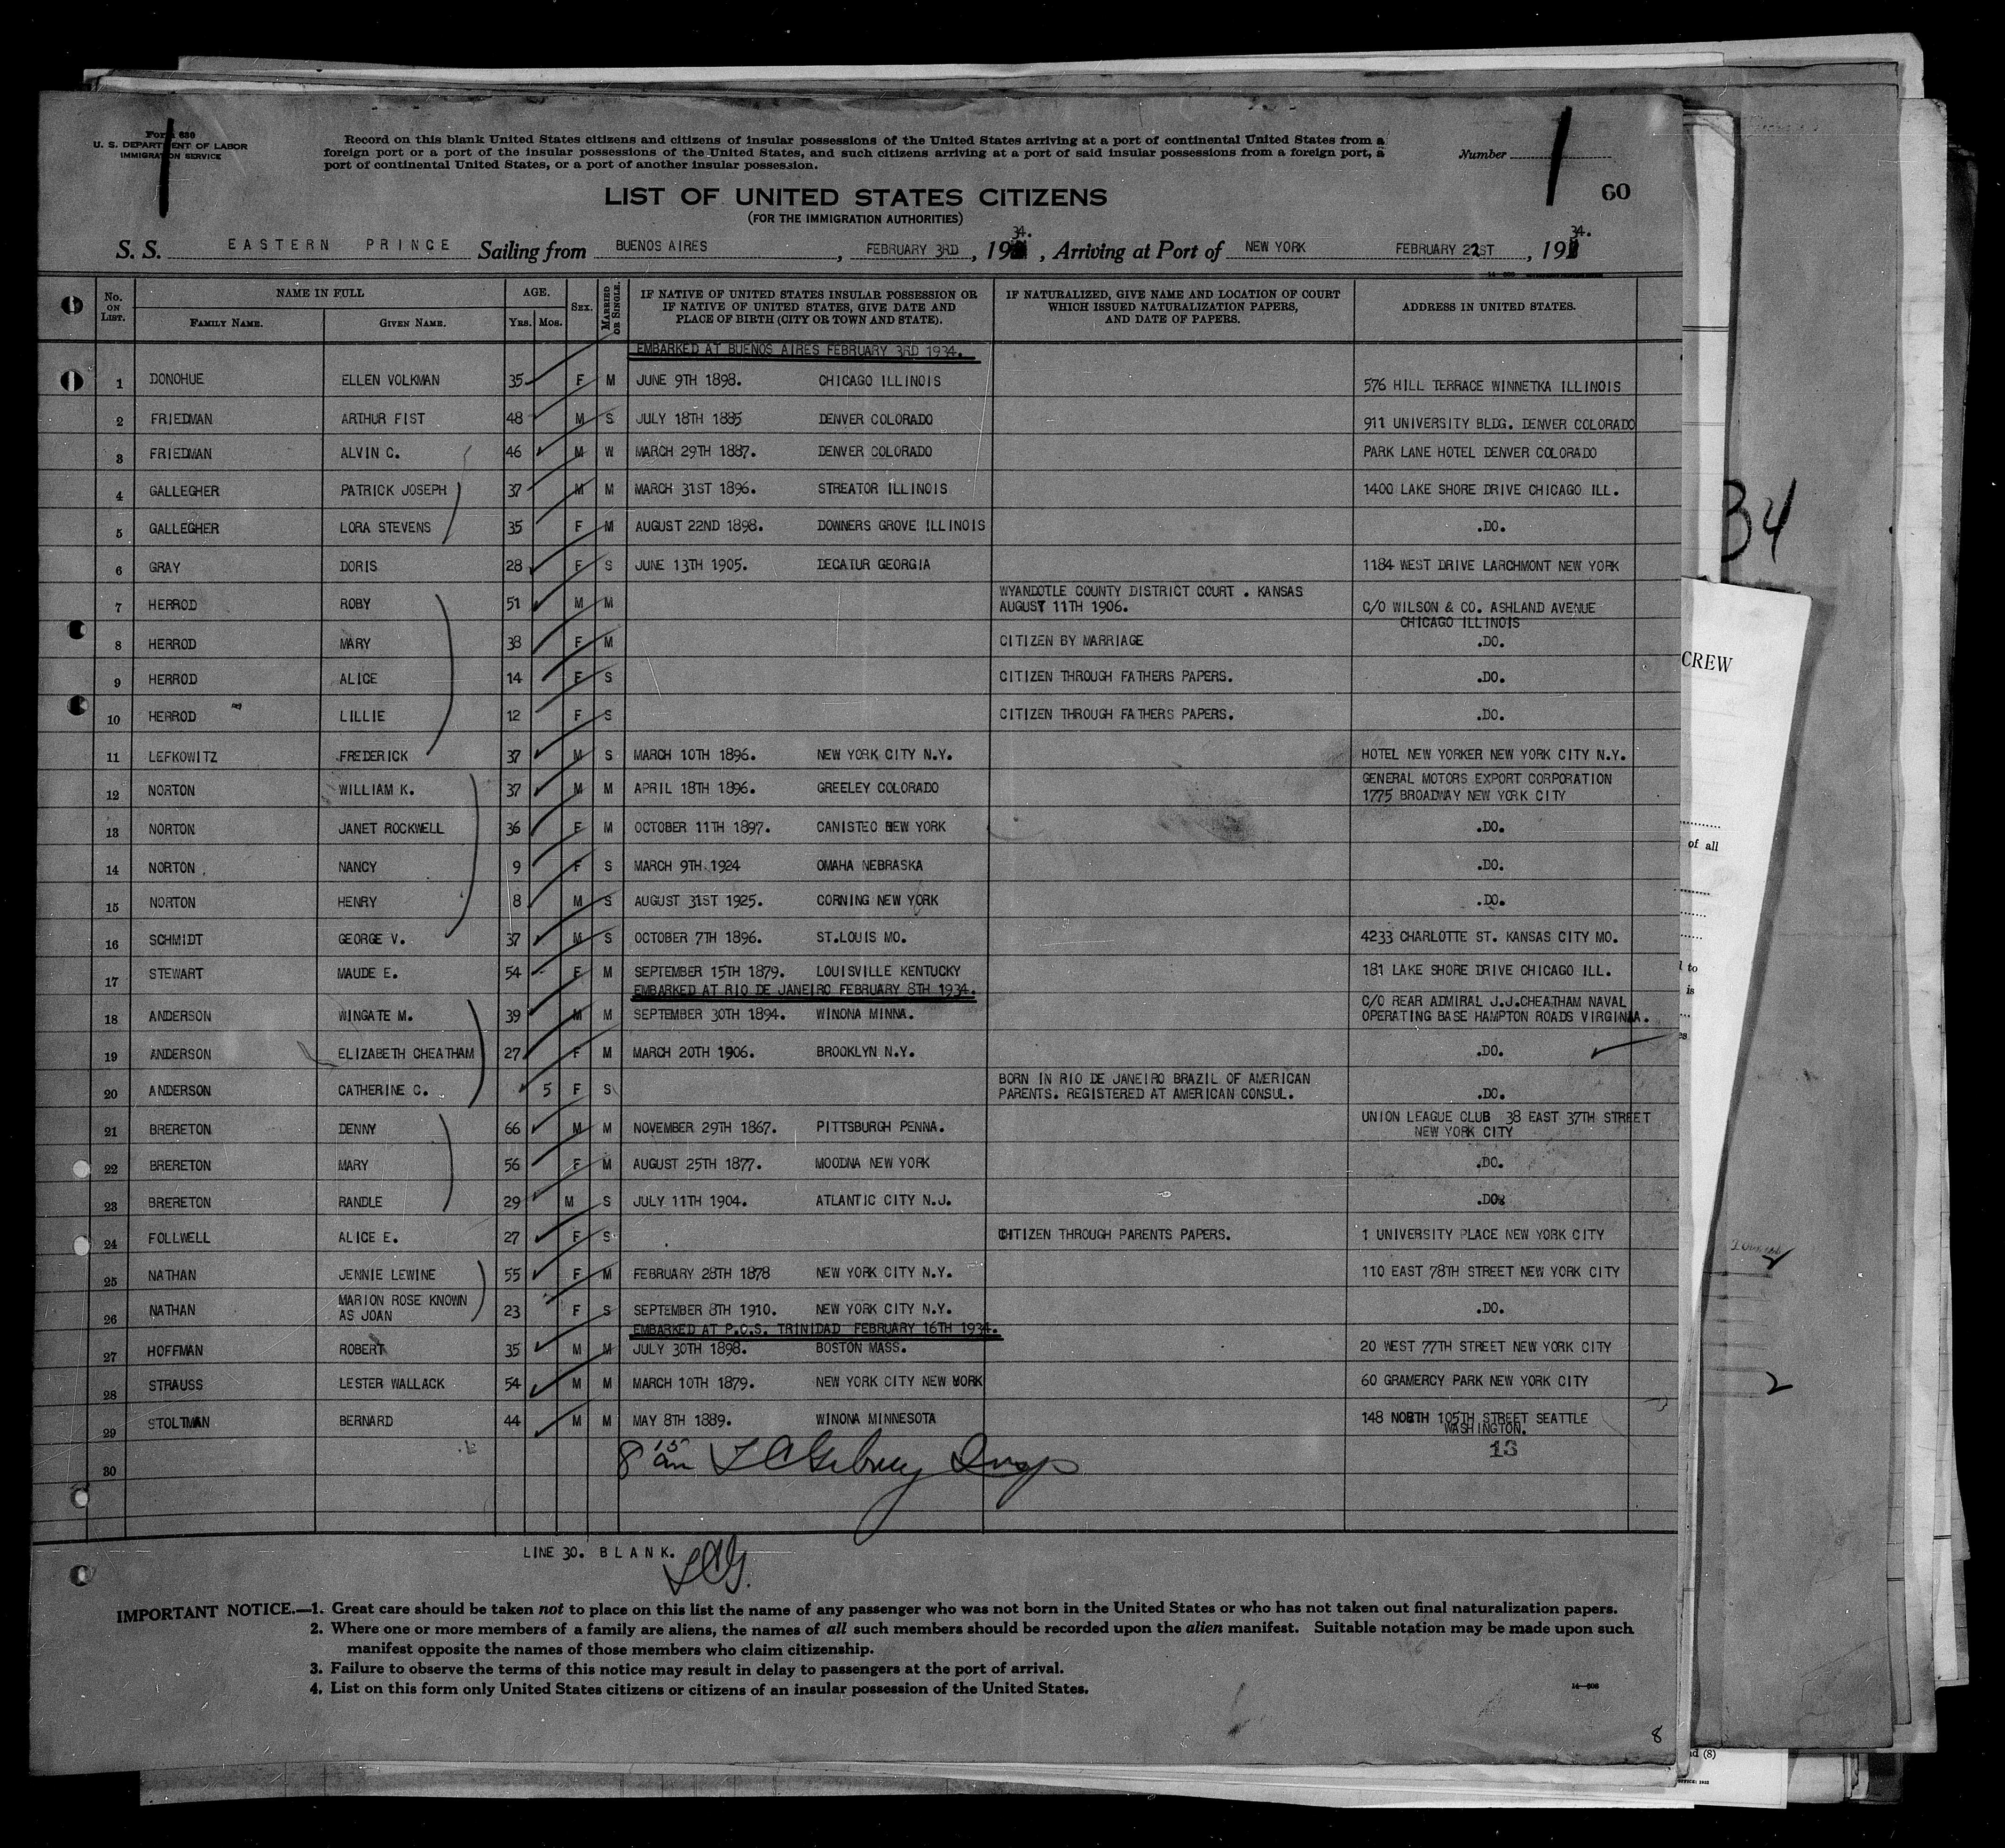 Form 630
U. S. DEPARTMENT OF LABOR
IMMIGRATION SERVICE
Record on this blank United States citizens and citizens of insular possessions of the United States arriving at a port of continental United States from a
foreign port or a port of the insular possessions of the United States, and such citizens arriving at a port of said insular possessions from a foreign port, a
port of continental United States, or a port of another insular possession.
Number
60
LIST OF UNITED STATES CITIZENS
(FOR THE IMMIGRATION AUTHORITIES)
S. S. EASTERN PRINCE Sailing from BUENOS AIRES, FEBRUARY 3RD, 1934., Arriving at Port of NEW YORK FEBRUARY 22ST, 1934.
No. ON LIST. NAME IN FULL FAMILY NAME. GIVEN NAME. AGE. Yrs. Mos. SEX. MARRIED OR SINGLE. IF NATIVE OF UNITED STATES INSULAR POSSESSION OR IF NATIVE OF UNITED STATES, GIVE DATE AND PLACE OF BIRTH (CITY OR TOWN AND STATE). IF NATURALIZED, GIVE NAME AND LOCATION OF COURT WHICH ISSUED NATURALIZATION PAPERS, AND DATE OF PAPERS. ADDRESS IN UNITED STATES.
EMBARKED AT BUENOS AIRES FEBRUARY 3RD 1934.
1 DONOHUE ELLEN VOLKMAN 35 F M JUNE 9TH 1898. CHICAGO ILLINOIS 576 HILL TERRACE WINNETKA ILLINOIS
2 FRIEDMAN ARTHUR FIST 48 M S JULY 18TH 1885 DENVER COLORADO 911 UNIVERSITY BLDG. DENVER COLORADO
3 FRIEDMAN ALVIN C. 46 M W MARCH 29TH 1887. DENVER COLORADO PARK LANE HOTEL DENVER COLORADO
4 GALLEGHER PATRICK JOSEPH 37 M M MARCH 31ST 1896. STREATOR ILLINOIS 1400 LAKE SHORE DRIVE CHICAGO ILL.
5 GALLEGHER LORA STEVENS 35 F M AUGUST 22ND 1898. DOWNERS GROVE ILLINOIS .DO.
6 GRAY DORIS 28 F S JUNE 13TH 1905. DECATUR GEORGIA 1184 WEST DRIVE LARCHMONT NEW YORK
7 HERROD ROBY 51 M M WYANDOTLE COUNTY DISTRICT COURT . KANSAS
AUGUST 11TH 1906. C/O WILSON & CO. ASHLAND AVENUE
CHICAGO ILLINOIS
8 HERROD MARY 38 F M CITIZEN BY MARRIAGE .DO.
9 HERROD ALICE 14 F S CITIZEN THROUGH FATHERS PAPERS. .DO.
10 HERROD LILLIE 12 F S CITIZEN THROUGH FATHERS PAPERS. .DO.
11 LEFKOWITZ FREDERICK 37 M S MARCH 10TH 1896. NEW YORK CITY N.Y. HOTEL NEW YORKER NEW YORK CITY N.Y.
12 NORTON WILLIAM K. 37 M M APRIL 18TH 1896. GREELEY COLORADO GENERAL MOTORS EXPORT CORPORATION
1775 BROADWAY NEW YORK CITY
13 NORTON JANET ROCKWELL 36 F M OCTOBER 11TH 1897. CANISTEO NEW YORK .DO.
14 NORTON NANCY 9 F S MARCH 9TH 1924 OMAHA NEBRASKA .DO.
15 NORTON HENRY 8 M S AUGUST 31ST 1925. CORNING NEW YORK .DO.
16 SCHMIDT GEORGE V. 37 M S OCTOBER 7TH 1896. ST.LOUIS MO. 4233 CHARLOTTE ST. KANSAS CITY MO.
17 STEWART MAUDE E. 54 F M SEPTEMBER 15TH 1879. LOUISVILLE KENTUCKY 181 LAKE SHORE DRIVE CHICAGO ILL.
EMBARKED AT RIO DE JANEIRO FEBRUARY 8TH 1934.
18 ANDERSON WINGATE M. 39 M M SEPTEMBER 30TH 1894. WINONA MINNA. C/O REAR ADMIRAL J.J.CHEATHAM NAVAL
OPERATING BASE HAMPTON ROADS VIRGINIA.
19 ANDERSON ELIZABETH CHEATHAM 27 F M MARCH 20TH 1906. BROOKLYN N.Y. .DO.
20 ANDERSON CATHERINE C. 5 F S BORN IN RIO DE JANEIRO BRAZIL OF AMERICAN
PARENTS. REGISTERED AT AMERICAN CONSUL. .DO.
21 BRERETON DENNY 66 M M NOVEMBER 29TH 1867. PITTSBURGH PENNA. UNION LEAGUE CLUB 38 EAST 37TH STREET
NEW YORK CITY
22 BRERETON MARY 56 F M AUGUST 25TH 1877. MOODNA NEW YORK .DO.
23 BRERETON RANDLE 29 M S JULY 11TH 1904. ATLANTIC CITY N.J. .DO.
24 FOLLWELL ALICE E. 27 F S CITIZEN THROUGH PARENTS PAPERS. 1 UNIVERSITY PLACE NEW YORK CITY
25 NATHAN JENNIE LEWINE 55 F M FEBRUARY 28TH 1878 NEW YORK CITY N.Y. 110 EAST 78TH STREET NEW YORK CITY
26 NATHAN MARION ROSE KNOWN
AS JOAN 23 F S SEPTEMBER 8TH 1910. NEW YORK CITY N.Y. .DO.
EMBARKED AT P.O.S. TRINIDAD FEBRUARY 16TH 1934.
27 HOFFMAN ROBERT 35 M M JULY 30TH 1898. BOSTON MASS. 20 WEST 77TH STREET NEW YORK CITY
28 STRAUSS LESTER WALLACK 54 M M MARCH 10TH 1879. NEW YORK CITY NEW YORK 60 GRAMERCY PARK NEW YORK CITY
29 STOLTMAN BERNARD 44 M M MAY 8TH 1889. WINONA MINNESOTA 148 NORTH 105TH STREET SEATTLE
WASHINGTON.
13
30
LINE 30. BLANK.
IMPORTANT NOTICE.—1. Great care should be taken not to place on this list the name of any passenger who was not born in the United States or who has not taken out final naturalization papers.
2. Where one or more members of a family are aliens, the names of all such members should be recorded upon the alien manifest. Suitable notation may be made upon such
manifest opposite the names of those members who claim citizenship.
3. Failure to observe the terms of this notice may result in delay to passengers at the port of arrival.
4. List on this form only United States citizens or citizens of an insular possession of the United States.
8
34
CREW
of all
to
is
2
2